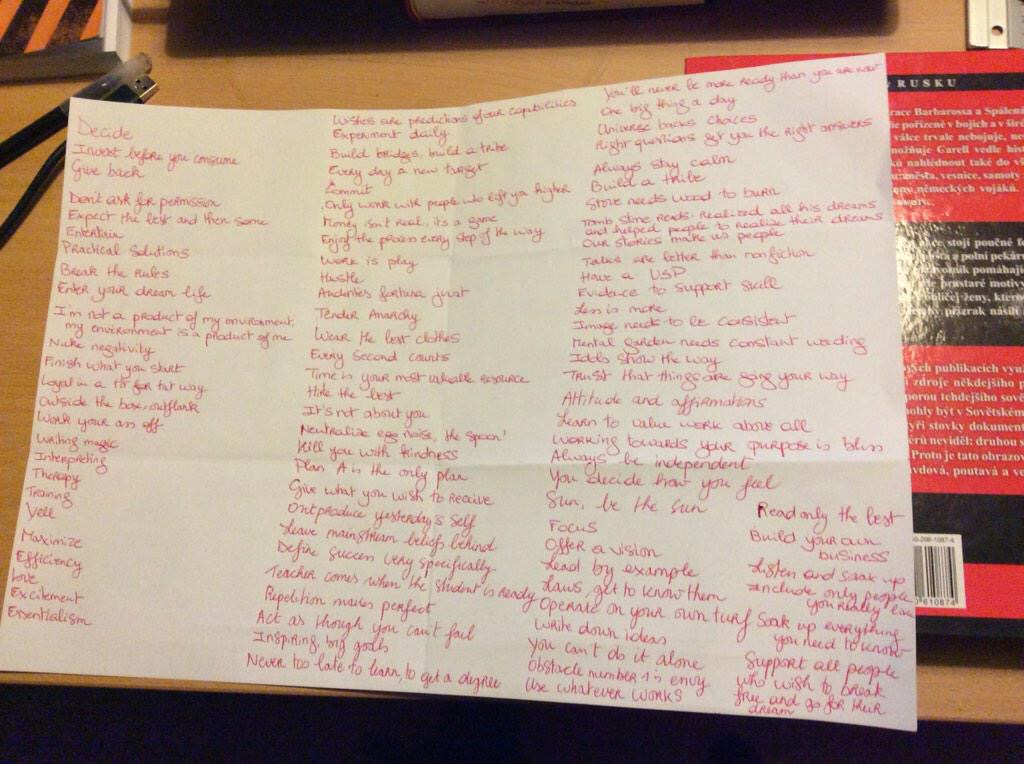 Decide
Invest before you consume
Give back
Don't ask for permission
Expect the best and then some
Entertain
Practical Solutions
Break the Rules
Enter your dream life
I'm not a product of my environment,
my environment is a product of me
Nuke negativity
Finish what you start
Loyal in a tit for tat way
Outside the box, outflank
Work your ass off
Writing magic
Interpreting
Therapy
Training
Yell
Maximize
Efficiency
Love
Excitement
Essentialism
Wishes are predictions of our capabilities
Experiment daily
Build bridges, build a tribe
Every day a new target
Commit
Only work with people who lift you higher
Money isn't real, it's a game
Enjoy the process every step of the way
Work is play
Hustle
Audentes fortuna juvat
Tender Anarchy
Wear the best clothes
Every second counts
Time is your most valuable resource
Hire the best
It's not about you
Neutralize ego noise, the spoon!
Kill you with kindness
Plan A is the only plan
Give what you wish to receive
Outproduce yesterday's self
Leave mainstream beliefs behind
Define success very specifically
Teacher comes when the student is ready
Repetition makes perfect
Act as though you can't fail
Inspiring, big goals
Never too late to learn, to get a degree
You'll never be more ready than you are now
One big thing a day
Universe backs choices
Right questions get you the right answers
Always stay calm
Build a tribe
Stove needs wood to burn
Tomb stone reads: Realized all his dreams
and helped people to realize their dreams
Our stories make us people
Tales are better than nonfiction
Have a USP
Evidence to support skill
Less is more
Image needs to be consistent
Mental garden needs constant weeding
Idols show the way
Trust that things are going your way
Attitude and affirmations
Learn to value work above all
Working towards your purpose is bliss
Always be independent
You decide how you feel
Sun, be the sun
Focus
Offer a vision
Lead by example
Laws, get to know them
Operate on your own turf
Write down ideas
You can't do it alone
Obstacle number 1 is envy
Use whatever works
Read only the best
Build your own
business
Listen and soak up
Include only people
you really like
Soak up everything
you need to know
Support all people
who wish to break
free and go for their
dream
RUSKU
race Barbarossa a Spálená
pořízené v bojích a v šir
válce trvale nebojuje, ne
možňuje Garell vedle his
nahlédnout také do v
města, vesnice, samoty
německých vojáků.
akce stojí poučné
a polní pekár
pomáhaj
prustaré motivy
ženy, kter
přízrak násilí
publikacích využ
zdroje někdejšího p
porou tehdejšího sově
mohly být v Sovětském
stovky dokument
neviděl: druhou s
Proto je tato obrazov
poutavá a ve
80-206-1087-4
610874